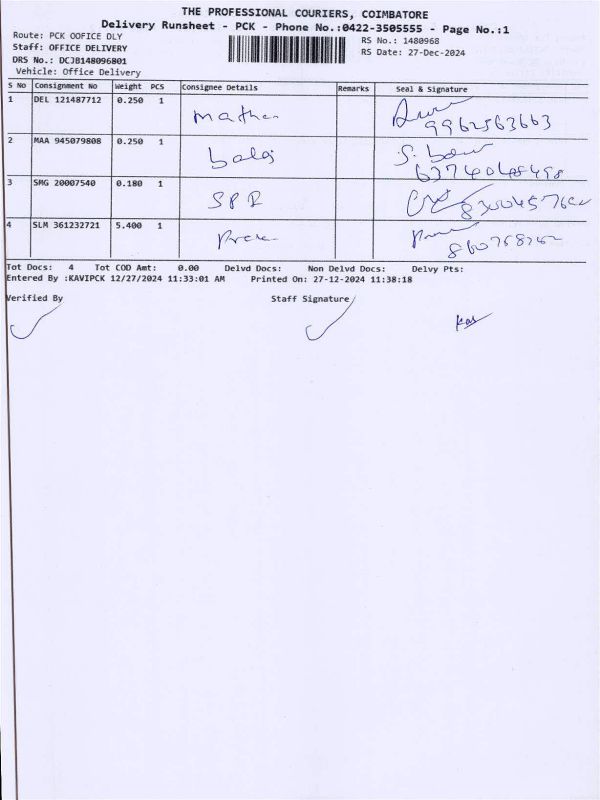 THE PROFESSIONAL COURIERS, COIMBATORE
Delivery Runsheet - PCK - Phone No.:0422-3505555 - Page No.:1
Route: PCK OOFICE DLY RS No.: 1480968
Staff: OFFICE DELIVERY RS Date: 27-Dec-2024
DRS No.: DCJB148096801
Vehicle: Office Delivery
S No Consignment No Weight PCS Consignee Details Remarks Seal & Signature
1 DEL 121487712 0.250 1
9962563663
2 MAA 945079808 0.250 1 balaj
3 SMG 20007540 0.180 1 SPR
4 SLM 361232721 5.400 1
Tot Docs: 4 Tot COD Amt: 0.00 Delvd Docs: Non Delvd Docs: Delvy Pts:
Entered By :KAVIPCK 12/27/2024 11:33:01 AM Printed On: 27-12-2024 11:38:18
Verified By Staff Signature